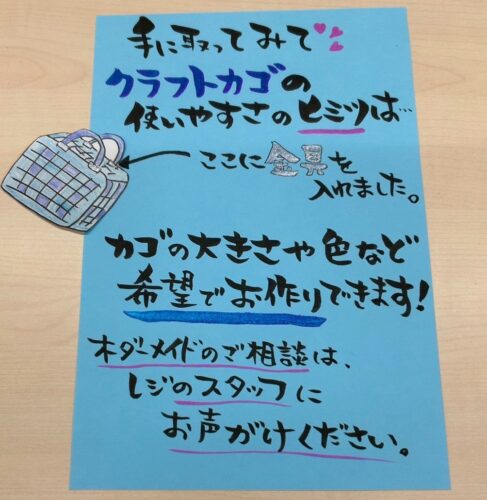 手に取ってみて
クラフトカゴの
使いやすさのヒミツは…
ここに金具を
入れました。
カゴの大きさや色など
希望でお作りできます!
オーダーメイドのご相談は、
レジのスタッフに
お声がけください。